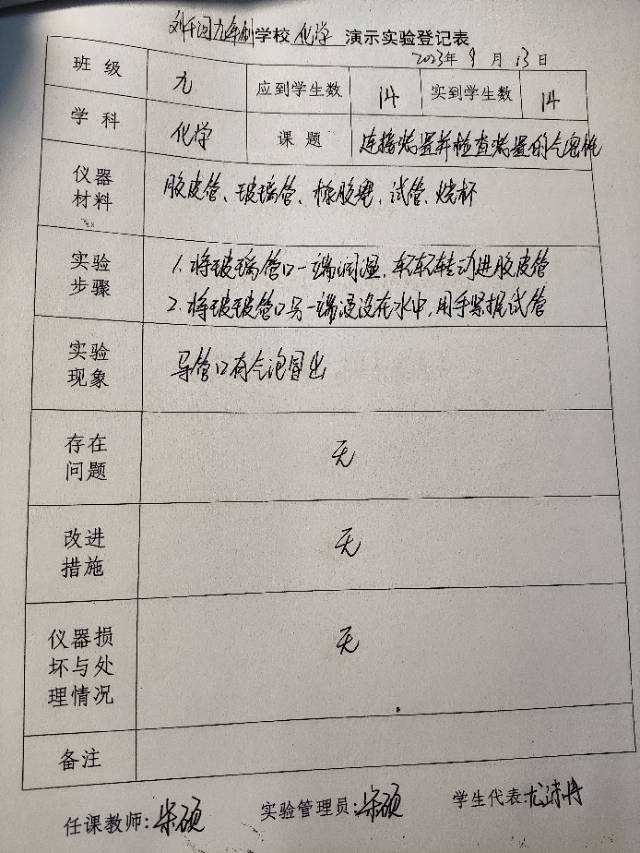 九年制学校 化学 演示实验登记表
2023年 9 月 13 日
班级 九 应到学生数 14 实到学生数 14
学科 化学 课题 连接装置并检查装置的气密性
仪器
材料
胶皮管、玻璃管、橡胶塞、试管、烧杯
实验
步骤
1. 将玻璃管口一端润湿,轻轻转动进胶皮管
2. 将玻玻管口另一端浸没在水中,用手紧握试管
实验
现象
导管口有气泡冒出
存在
问题
无
改进
措施
无
仪器损
坏与处
理情况
无
备注
任课教师: 实验管理员: 学生代表: